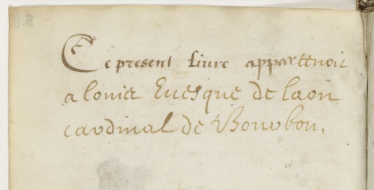 Ce present liure appartenoit
a louis Euesque de laon
cardinal de Bourbon.